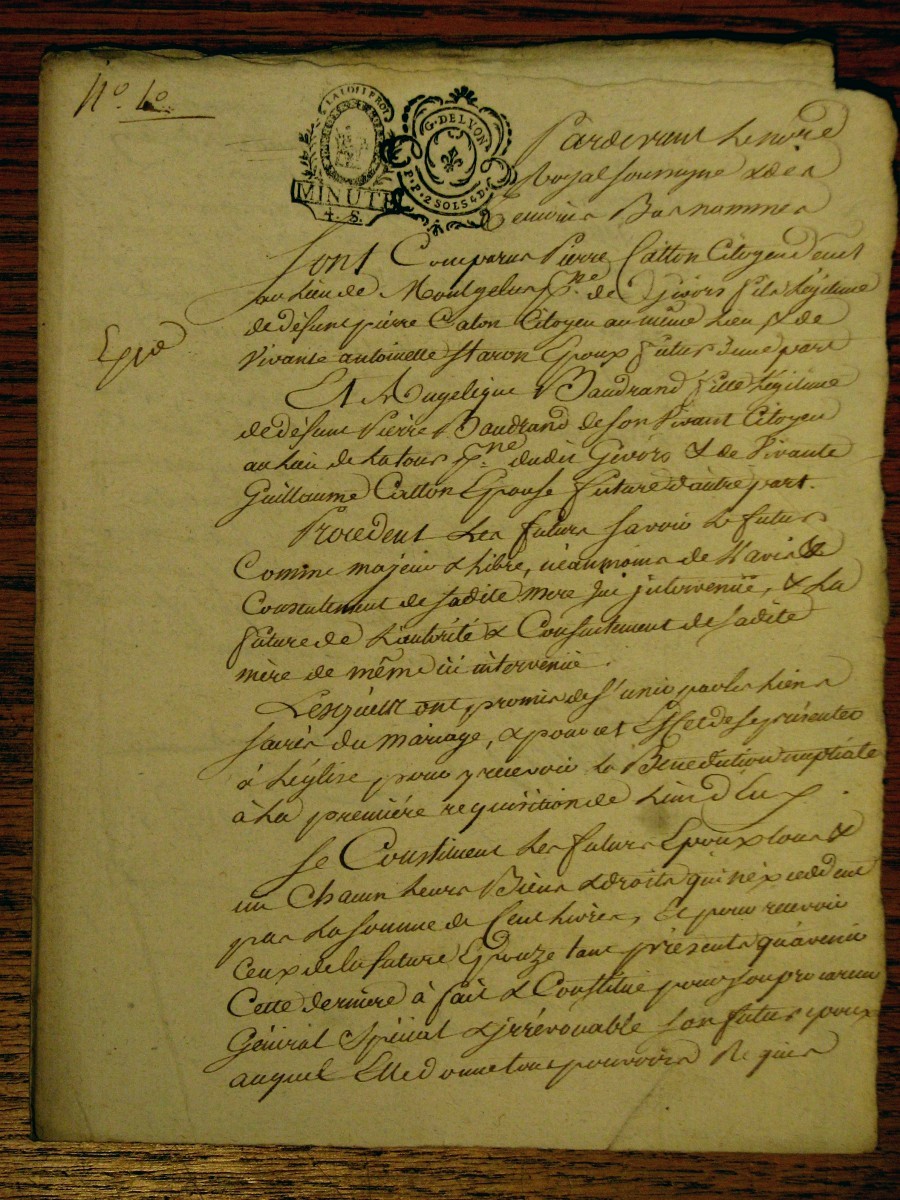 N.º 1.º
LA LOI LE ROI
MINUTE
4. S.
G. DE LYON
F. P. 2 SOLS 4 D.
Pardevant Le nore
Royal soussigné & des
Temoins Bas nommés
Expé
Sont Comparus Pierre Catton Citoyen dem.t
au Lieu de Montgelas p.ne de Givors fils Légitime
de défunt pierre Caton Citoyen au même Lieu & de
Vivante antoinette Staron Epoux futur d'une part
Et Angelique Baudrand fille Légitime
de défunt Pierre Baudrand de son Vivant Citoyen
au Lieu de La tour p.ne dudit Givors & de Vivante
Guillaume Catton Epouse future d'autre part.
Procedent Les futurs savoir Le futur
Comme majeur & Libre, néanmoins de L'avis &
Consentement de sadite mere ici intervenüe, & La
future de L'autorité & Consentement de sadite
mère de même ici intervenüe.
Lesquels ont promis de s'unir par les Liens
sacrés du mariage, & pour cet Effet de se présenter
à L'église pour y recevoir la Bénédiction nuptiale
à La première requisition de L'un d'Eux.
Se Constituent Les futurs Epoux tous &
un Chacun Leurs Biens & droits qui n'éxcedent
pas La somme de Cent Livres, Et pour recevoir
Ceux de la future Epouze tant présents qu'avenir
Cette dernière à fait & Constitué pour son procureur
Général Spécial & irrévocable son futur epoux
auquel Elle donne tous pouvoirs Requis